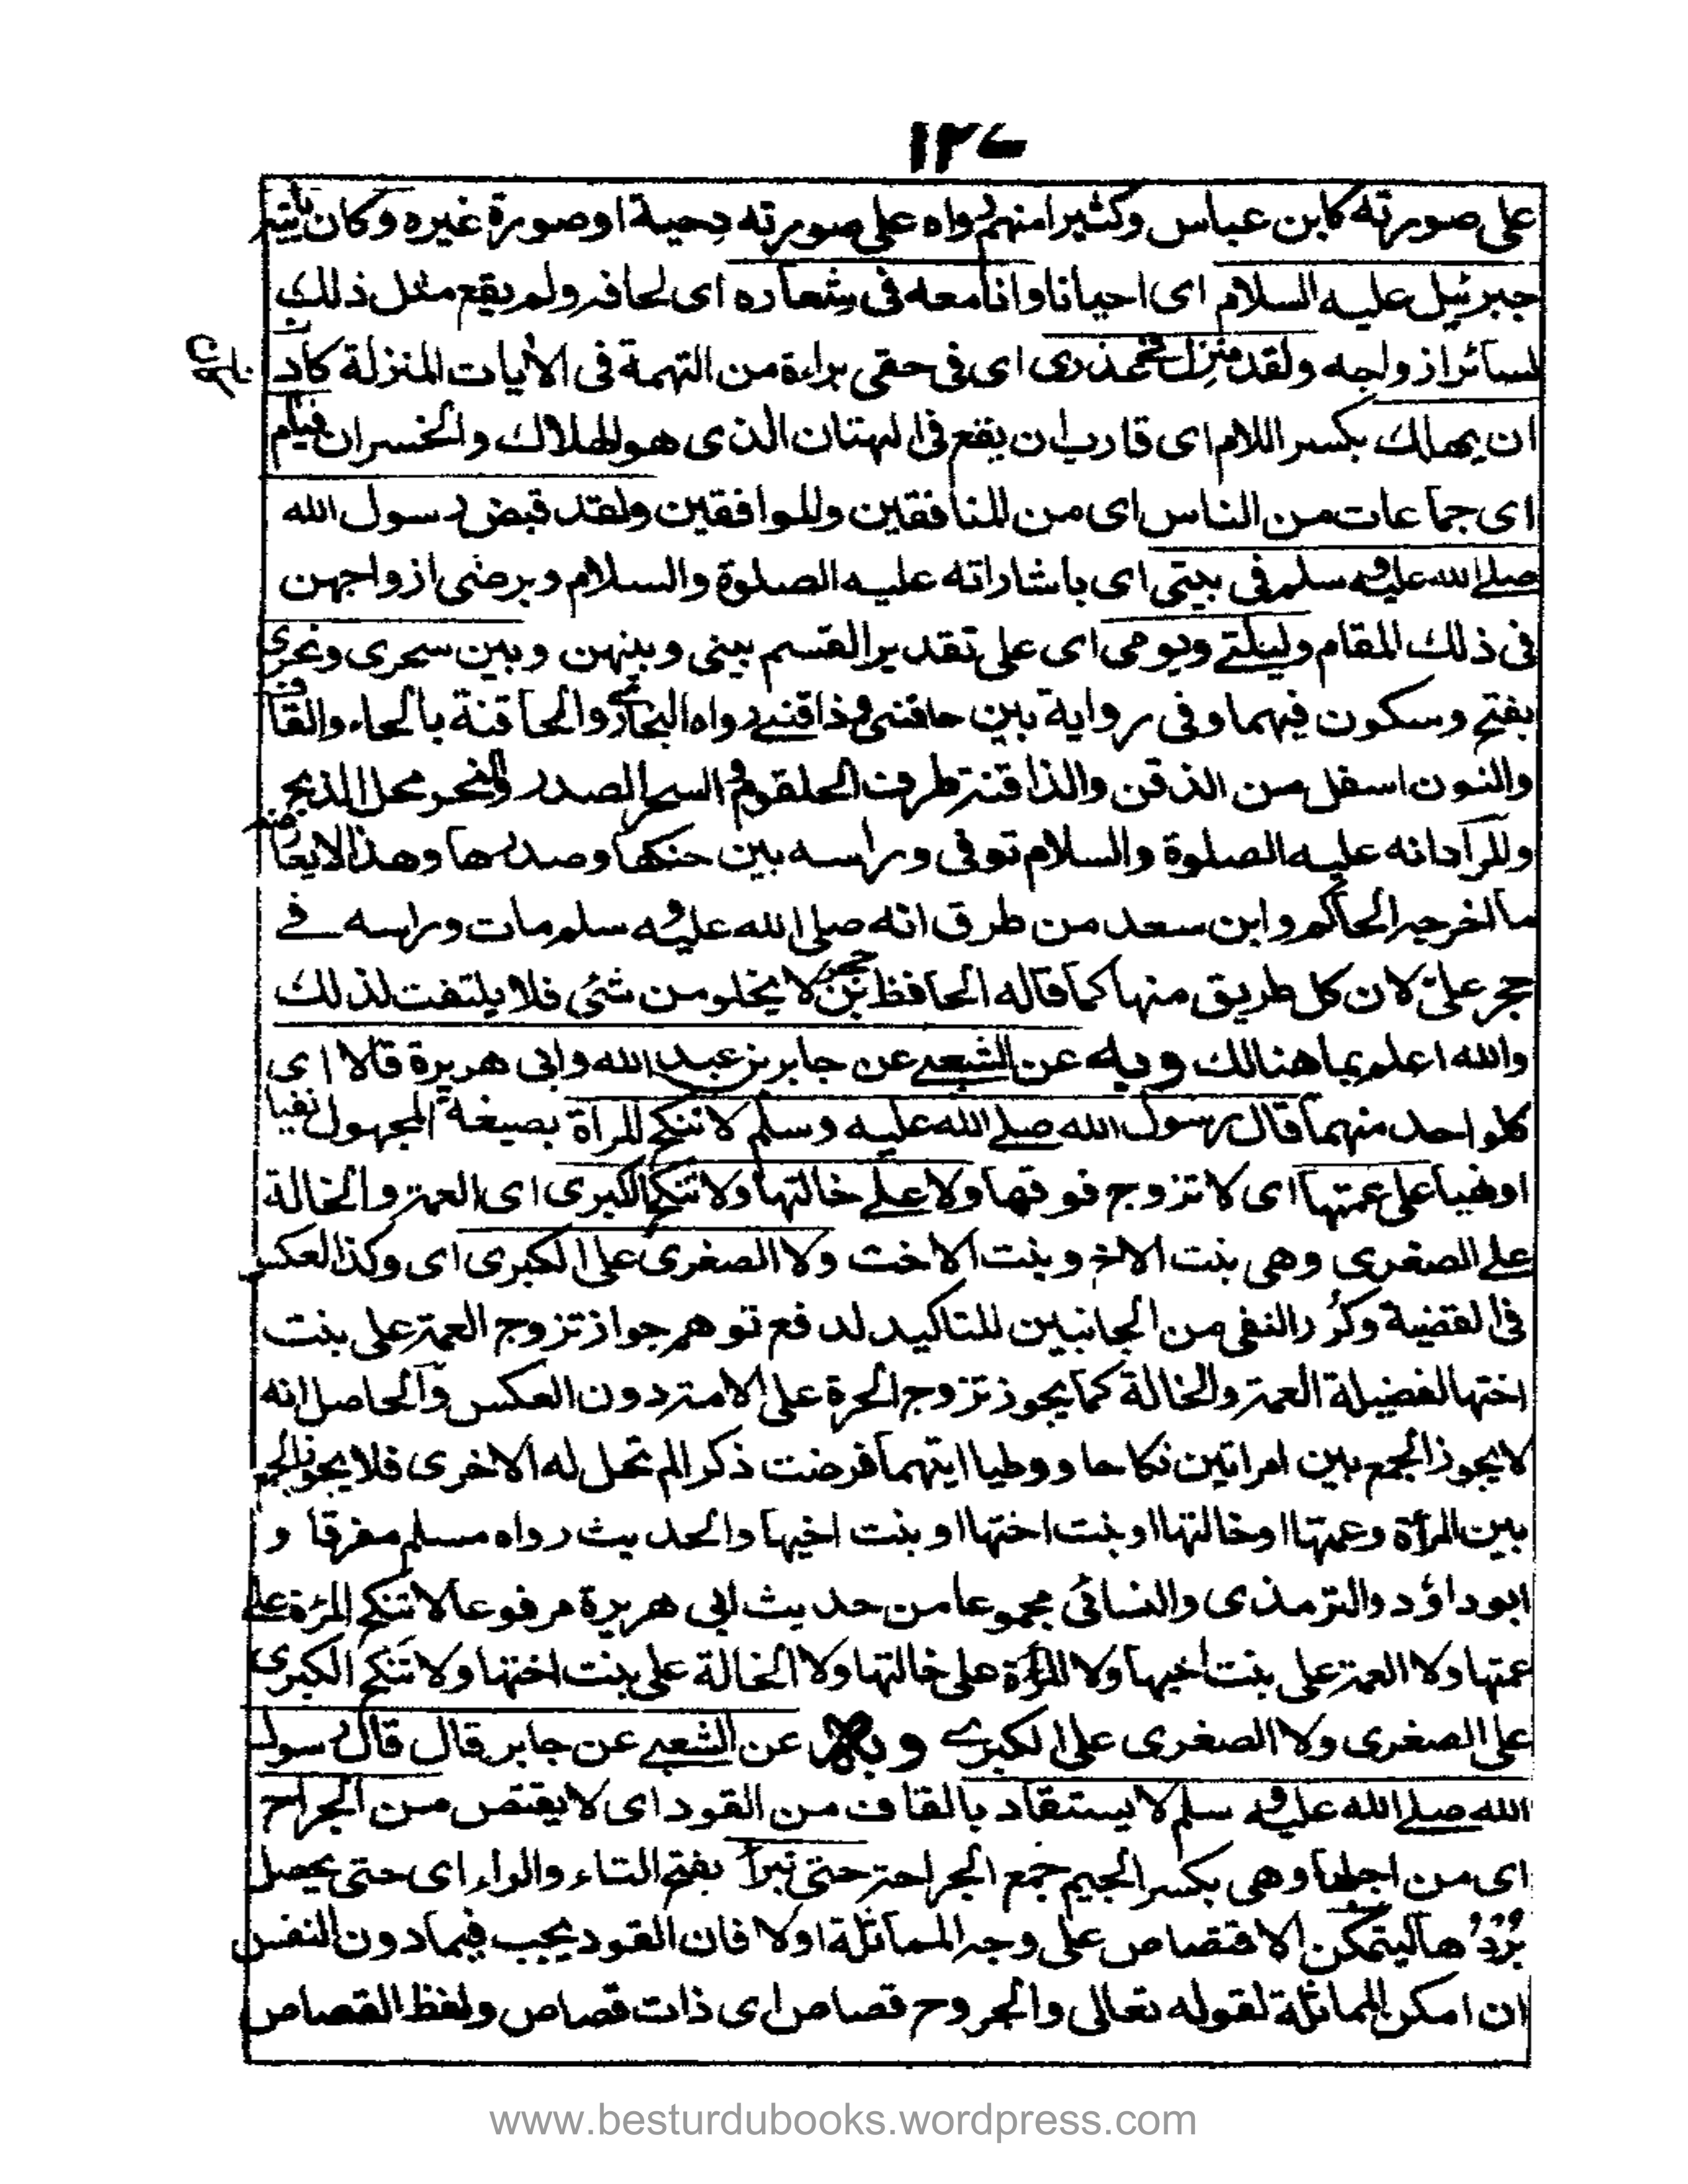 ١٢٧
على صورته كابن عباس وكثيرا منهم رواه على صورته دحية او صورة غيره وكان ياتيه
جبرئيل عليه السلام اى احيانا وانا معه فى شعاره اى لحافه ولم يقع مثل ذلك
لسائر ازواجه ولقد نزل فى عذرى اى فى حقى براءة من التهمة فى الأيات المنزلة كاد
ان يهلك بكسر اللام اى قارب ان يقع فى البهتان الذى هو الهلاك والخسران فئام
اى جماعات من الناس اى من المنافقين والموافقين ولقد قبض رسول الله
صلے الله عليه وسلم فى بيتى اى باشاراته عليه الصلوة والسلام وبرضى ازواجهن
فى ذلك المقام وليلتے ويومى اى على تقدير القسم بينى وبينهن وبين سحرى ونحرى
بفتح وسكون فيهما وفى رواية بين حاقنتى وذاقنتے رواه البخارى والحاقنة بالحاء والقاف
والنون اسفل من الذقن والذاقنة طرف الحلقوم والسحر الصدر والنحر محل الذبح
والمراد انه عليه الصلوة والسلام توفى وراسه بين حنكها وصدرها وهذا لايعارضه
ما اخرجه الحاكم وابن سعد من طرق انه صلى الله عليه وسلم مات وراسه فے
حجر علىّ لان كل طريق منها كما قاله الحافظ بن حجر لا يخلو من شئى فلا يلتفت لذلك
والله اعلم بما هنالك وبه عن الشعبے عن جابر بن عبد الله وابى هريرة قالا اى
كلواحد منهما قال رسول الله صلے الله عليه وسلم لا تنكح المراة بصيغة المجهول نفيا
او نهيا على عمتها اى لا تزوج فوقها ولا علے خالتها ولا تنكح الكبرى اى العمة والخالة
علے الصغرى وهى بنت الاخ وبنت الاخت ولا الصغرى على الكبرى اى وكذا العكس
فى القضية وكُرر النفى من الجانبين للتاكيد لدفع توهم جواز تزوج العمة على بنت
اختها لفضيلة العمة والخالة كما يجوز تزوج الحرة على الامة دون العكس والحاصل انه
لا يجوز الجمع بين امراتين نكاحا ووطيا ايتهما فرضت ذكرا لم تحل له الاخرى فلا يجوز الجمع
بين المرأة وعمتها او خالتها او بنت اختها او بنت اخيها والحديث رواه مسلم مفرقا و
ابوداؤد والترمذى والنسائى مجموعا من حديث ابى هريرة مرفوعا لا تنكح المرءة علے
عمتها ولا العمة على بنت اخيها ولا المرأة على خالتها ولا الخالة على بنت اختها ولا تنكح الكبرى
على الصغرى ولا الصغرى على الكبرے وبه عن الشعبے عن جابر قال قال رسول
الله صلے الله عليه وسلم لا يستقاد بالقاف من القود اى لا يقتص من الجراح
اى من اجلها وهى بكسر الجيم جمع الجراحة حتى تبرأ بفتح التاء والراء اى حتى يحصل
بُرْؤُها ليتمكن الاقتصاص على وجه المماثلة اولا فان القود يجب فيما دون النفس
ان امكن المماثلة لقوله تعالى والجروح قصاص اى ذات قصاص ولفظ القصاص
www.besturdubooks.wordpress.com